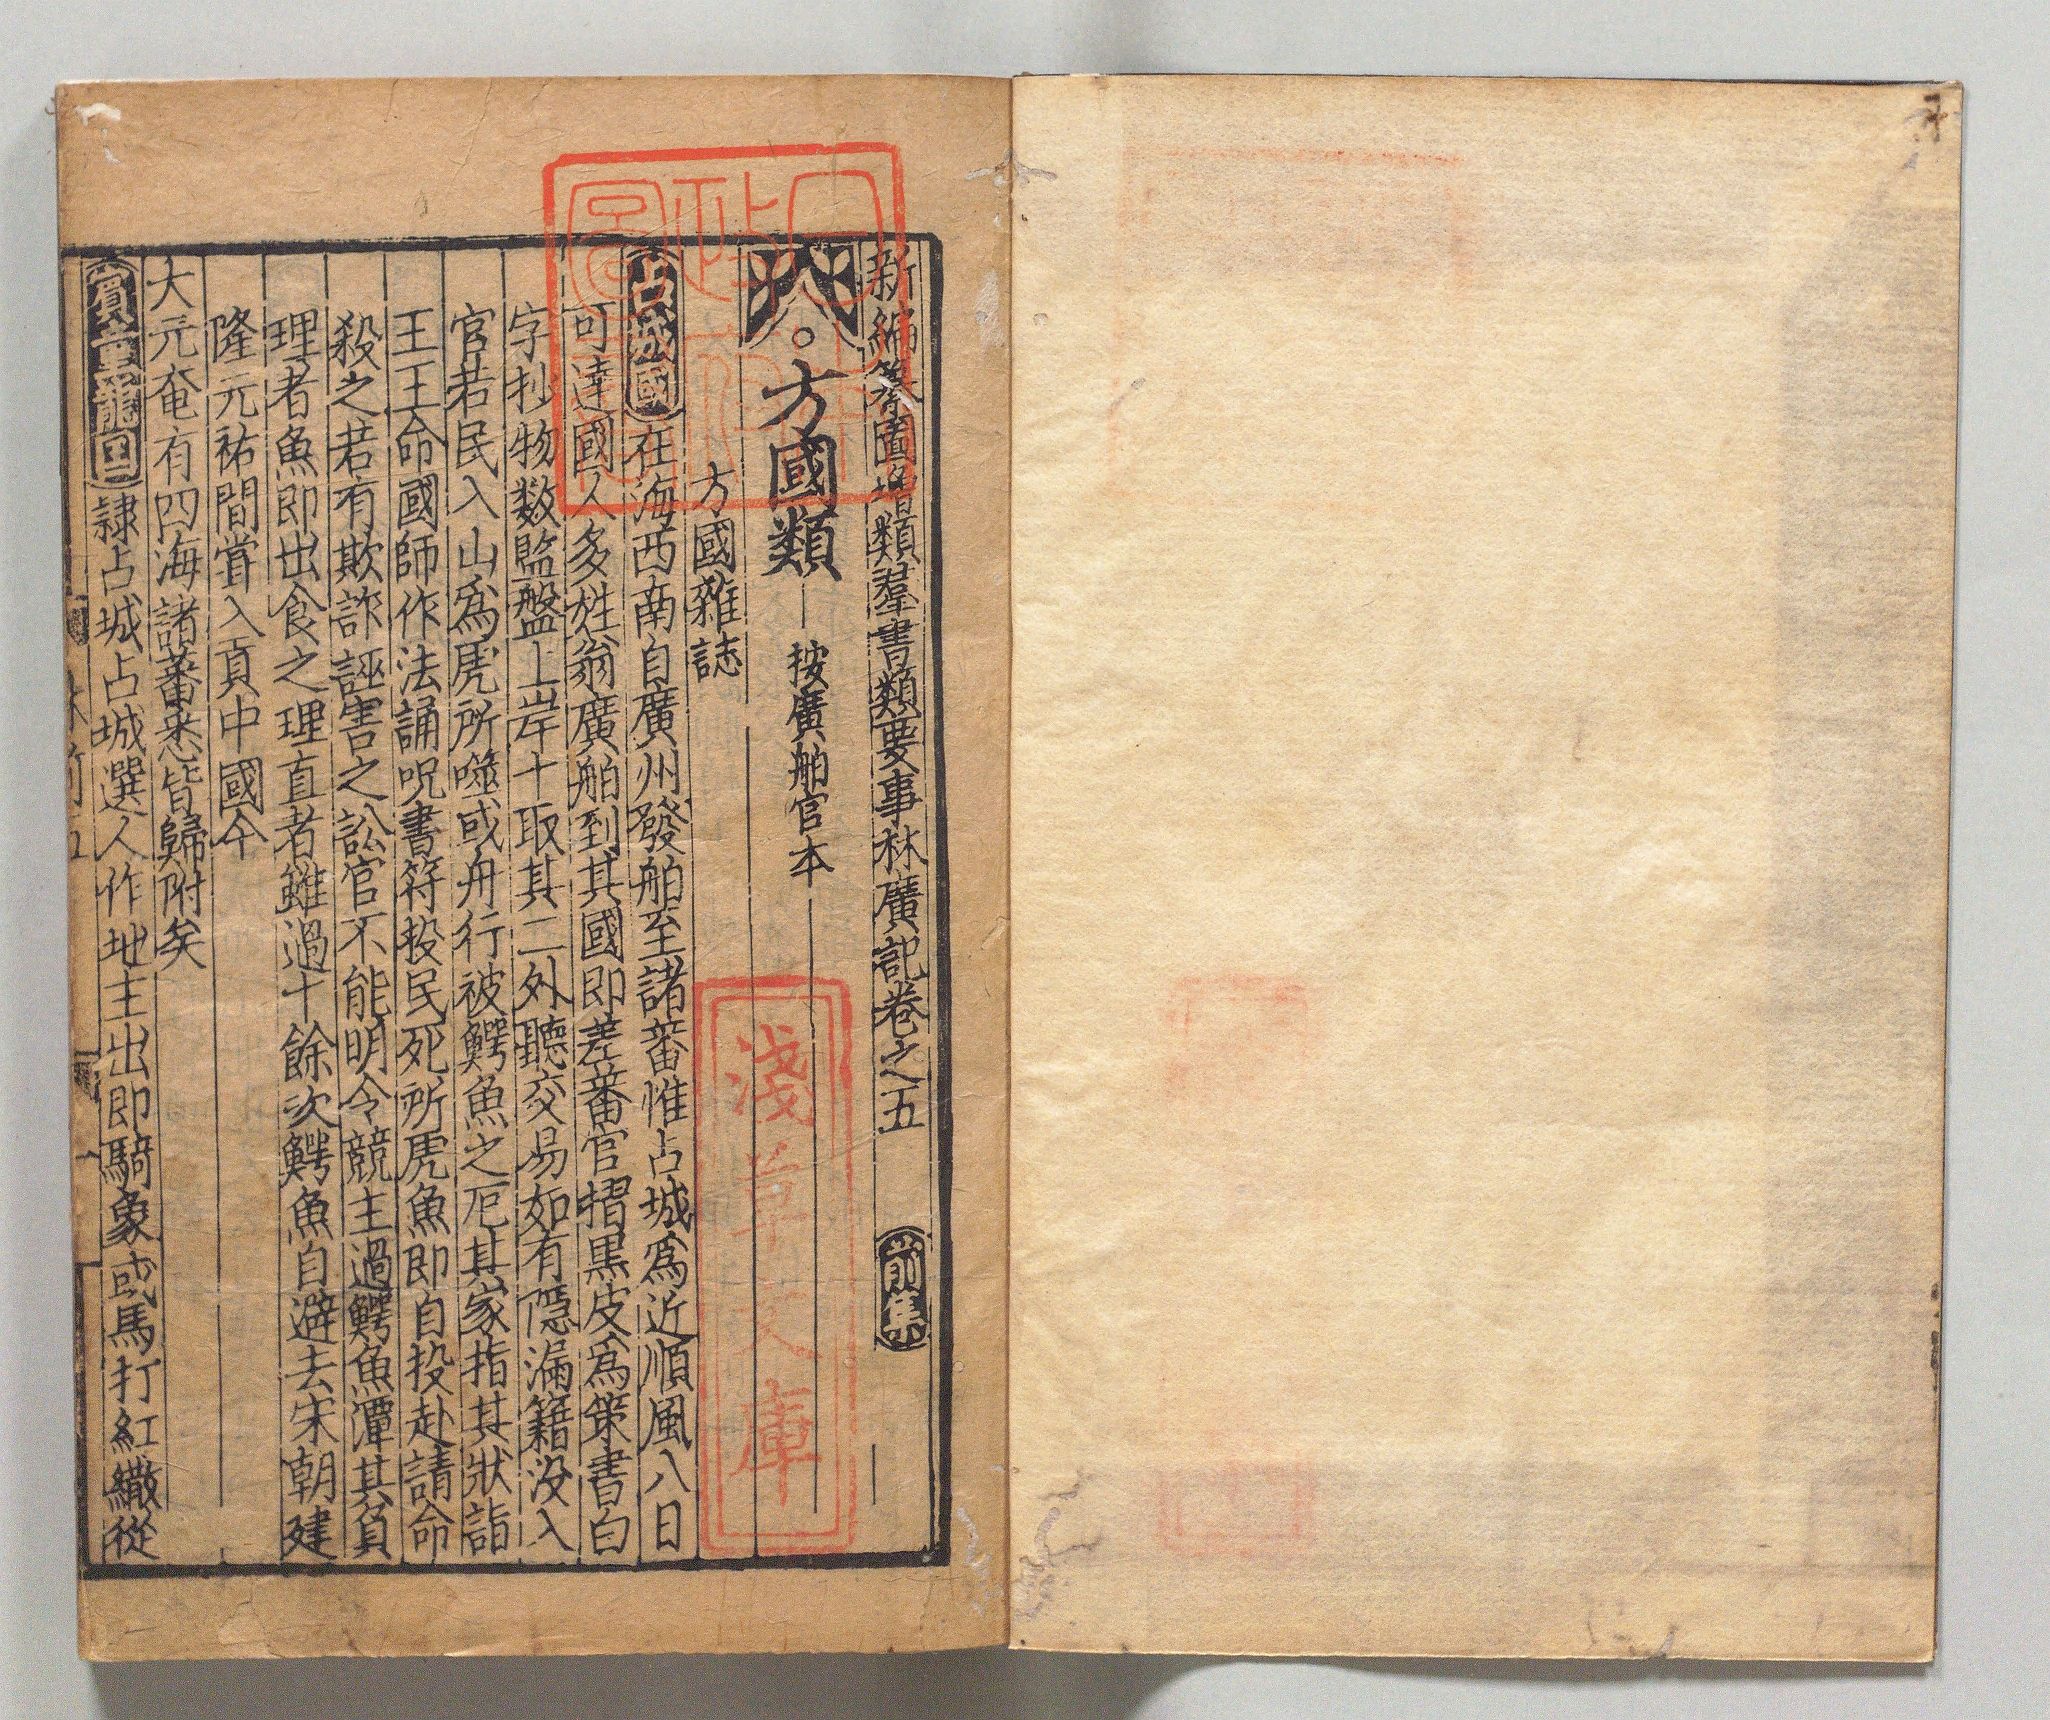 新編纂圖增類羣書類要事林廣記卷之五 前集
方國類 按廣舶官本
方國雜誌
占城國 在海西南自廣州發舶至諸蕃惟占城爲近順風八日
可達國人多姓翁廣舶到其國即差蕃官摺黒皮爲策書白
字抄物数監盤上岸十取其二外聽交易如有隱漏籍没入
官若民入山爲虎所噬或舟行被鰐魚之厄其家指其狀詣
王王命國師作法誦呪書符投民死所虎魚即自投赴請命
殺之若有欺詐誣害之訟官不能明令競主過鰐魚潭其負
理者魚即出食之理直者雖過十餘次鰐魚自避去宋朝建
隆元祐間甞入貢中國今
大元奄有四海諸蕃悉皆歸附矣
賓童龍国 隷占城占城選人作地主出即騎象或馬打紅繖從
淺草文庫